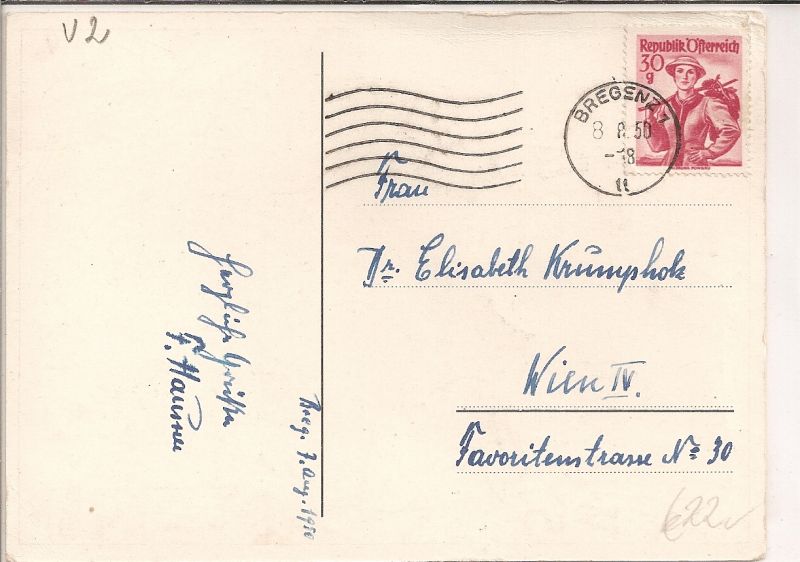 V2
Republik Österreich
30 g
BREGENZ 1
8 8 50
-18
11
Frau
Dr. Elisabeth Krumpholz
Wien IV.
Favoritenstrasse № 30
herzliche Grüße
F. Hausner
Breg. 7. Aug. 1950
€22